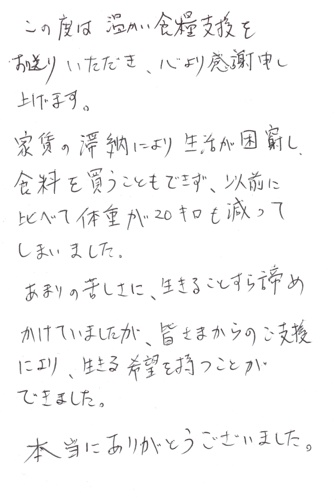 この度は 温かい食糧支援を
お送りいただき、心より感謝申し
上げます。
家賃の滞納により生活が困窮し、
食料を買うこともできず、以前に
比べて体重が20キロも減って
しまいました。
あまりの苦しさに、生きることすら諦め
かけていましたが、皆さまからのご支援
により、生きる希望を持つことが
できました。
本当にありがとうございました。